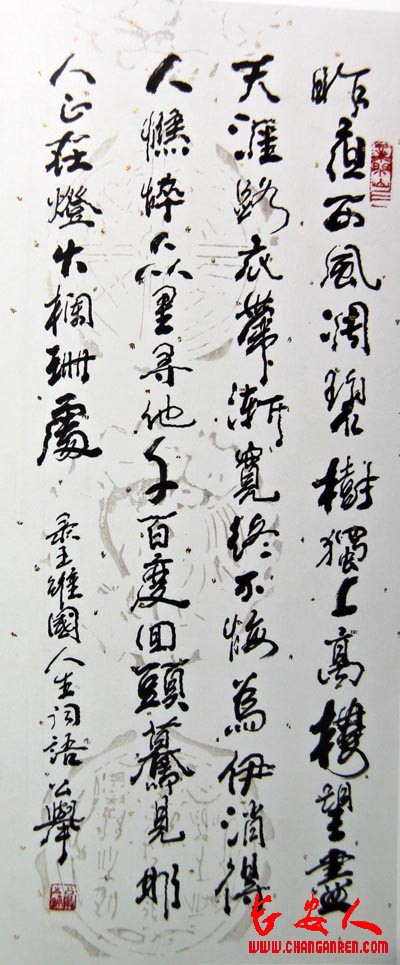 昨夜西風凋碧樹獨上高樓望盡
天涯路衣帶漸寬終不悔為伊消得
人憔悴众里尋他千百度回頭驀見那
人正在燈火欄珊處
录王維國人生词語 公舉
长安人
WWW.CHANGANREN.COM